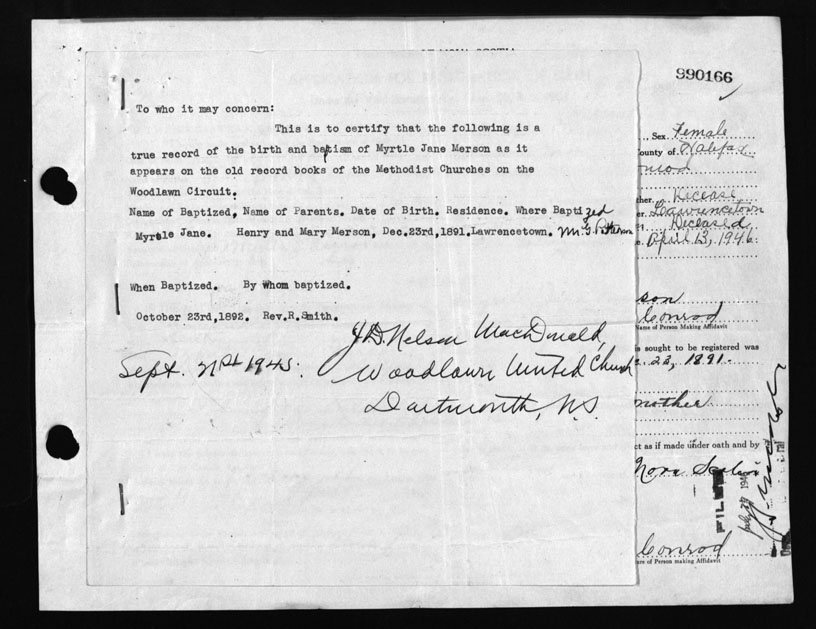 990166
To who it may concern:
This is to certify that the following is a
true record of the birth and baptism of Myrtle Jane Merson as it
appears on the old record books of the Methodist Churches on the
Woodlawn Circuit.
Name of Baptized, Name of Parents. Date of Birth. Residence. Where Baptized
Myrtle Jane. Henry and Mary Merson, Dec.23rd,1891.Lawrencetown.
When Baptized. By Whom baptized.
October 23rd,1892. Rev.R.Smith.
J.D. Nelson MacDonald,
Sept. 1945. Woodlawn United Church
Dartmouth, N.S.
Sex Female
ounty of Halifax
Lawrencetown
Deceased
April 13, 1946.
son
Conrod
Name of Person Making Affidavit
s sought to be registered was
23, 1891.
mother
ct as if made under oath and by
Conrod
ure of Person making Affidavit